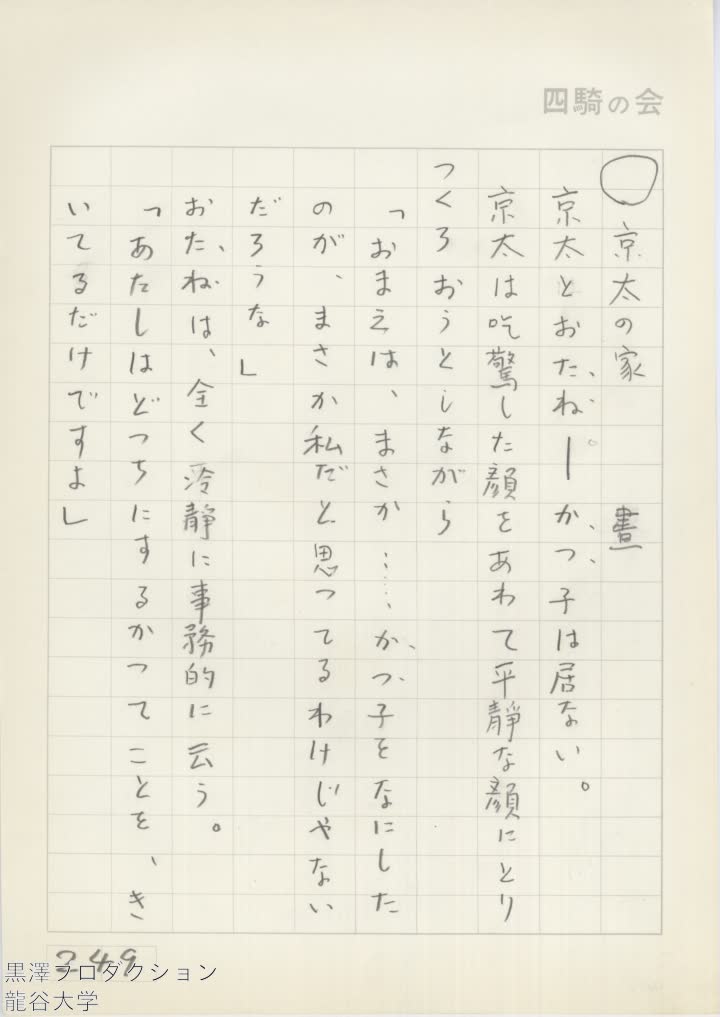 四騎の会
○京太の家　　晝
京太とおたね―かつ子は居ない。
京太は吃驚した顔をあわて平靜な顔にとり
つくろおうとしながら
「おまえは、まさか……かつ子をなにした
のが、まさか私だと思つてるわけじやない
だろうな」
おたねは、全く冷靜に事務的に云う。
「あたしはどつちにするかつてことを、き
いてるだけですよ」
249
黒澤プロダクション
龍谷大学